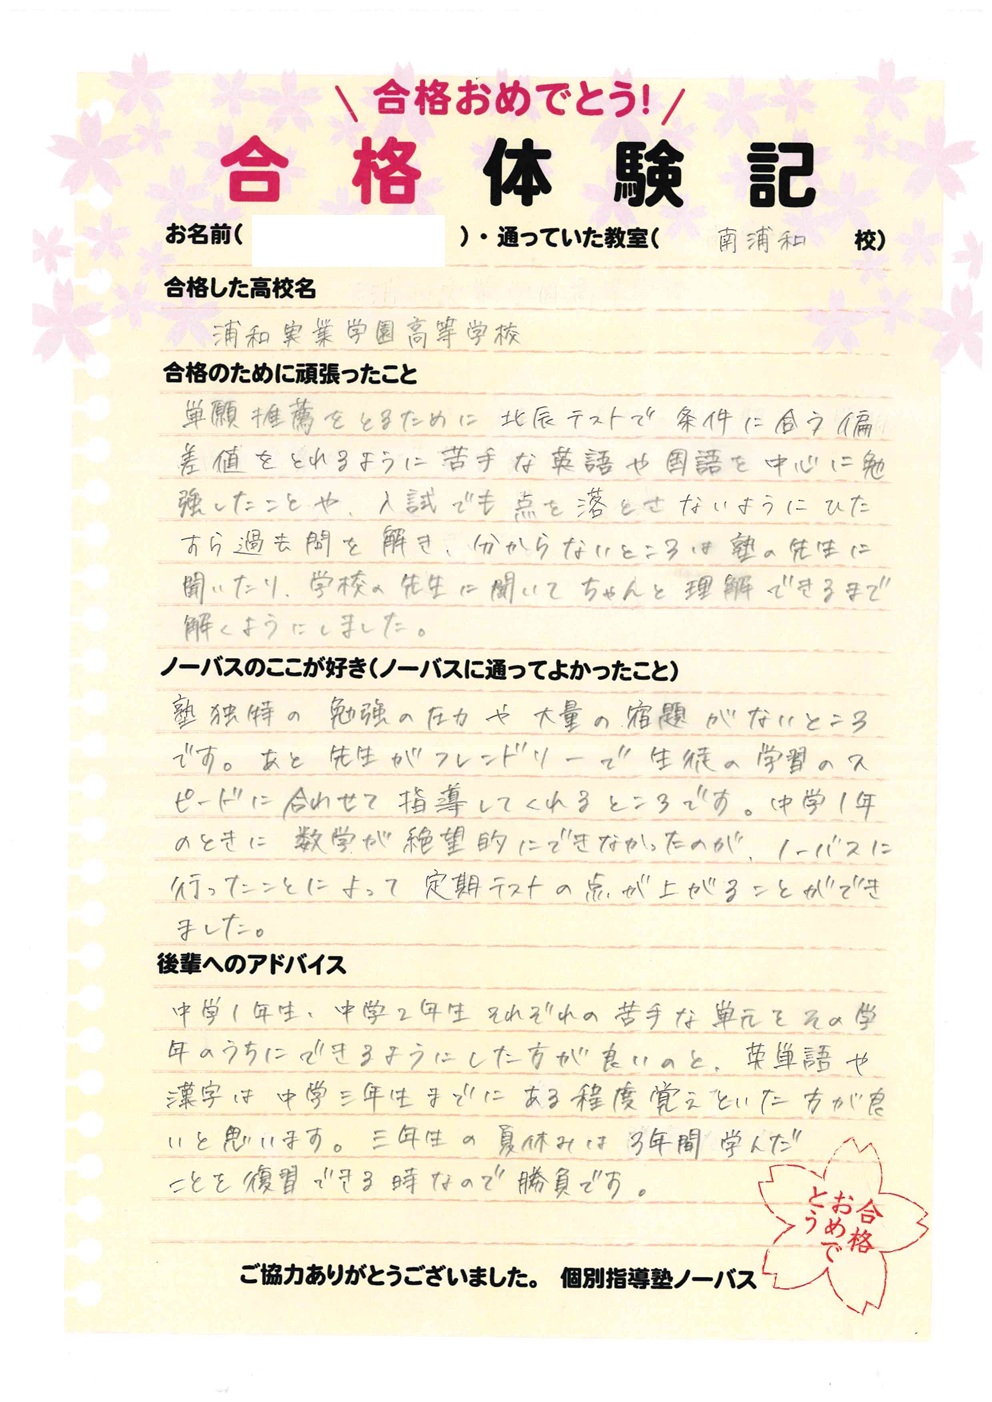 合格おめでとう!
合格体験記
お名前( )・通っていた教室( 南浦和 校)
合格した高校名
浦和実業学園高等学校
合格のために頑張ったこと
単願推薦をとるために北辰テストで条件に合う偏
差値をとれるように苦手な英語や国語を中心に勉
強したことや、入試でも点を落とさないようにひた
すら過去問を解き、分からないところは塾の先生に
聞いたり、学校の先生に聞いてちゃんと理解できるまで
解くようにしました。
ノーバスのここが好き(ノーバスに通ってよかったこと)
塾独特の勉強の圧力や大量の宿題がないところ
です。あと先生がフレンドリーで生徒の学習のス
ピードに合わせて指導してくれるところです。中学1年
のときに数学が絶望的にできなかったのが、ノーバスに
行ったことによって定期テストの点が上がることができ
ました。
後輩へのアドバイス
中学1年生、中学2年生それぞれの苦手な単元をその学
年のうちにできるようにした方が良いのと、英単語や
漢字は中学三年生までにある程度覚えといた方が良
いと思います。三年生の夏休みは3年間学んだ
ことを復習できる時なので勝負です。
合格
おめで
とう
ご協力ありがとうございました。 個別指導塾ノーバス